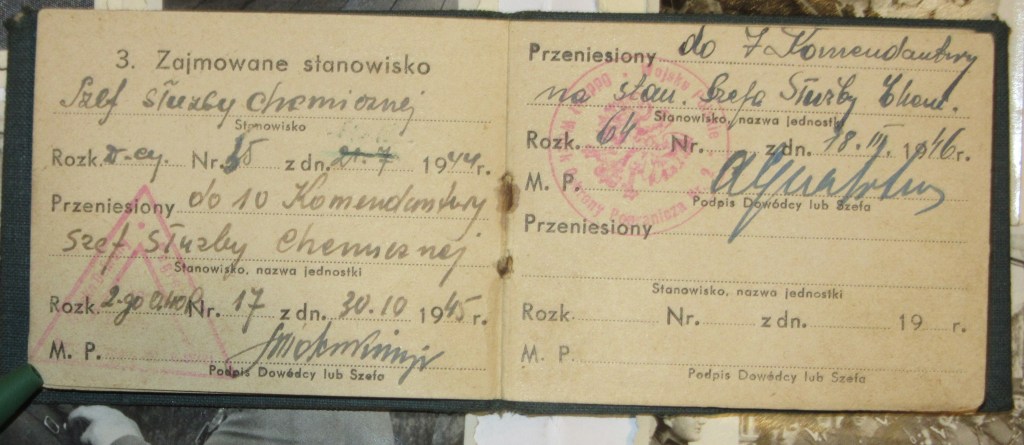 3. Zajmowane stanowisko
Szef służby chemicznej
Stanowisko
Rozk. d-cy. Nr. 35 z dn. 21.7 1944 r.
Przeniesiony do 10 Komendantury
Szef służby chemicznej
Stanowisko, nazwa jednostki
Rozk. 2-go Nr. 17 z dn. 30.10 1945 r.
M. P.
Podpis Dowódcy lub Szefa
Przeniesiony do 7 Komendantury
na stan. Szefa Służby Chem.
Stanowisko, nazwa jednostki
Rozk. 64 Nr. z dn. 18. III. 1946 r.
M. P.
Podpis Dowódcy lub Szefa
Przeniesiony
Stanowisko, nazwa jednostki
Rozk. Nr. z dn. 19 r.
M. P.
Podpis Dowódcy lub Szefa
Wojsko
Ochrony Pogranicza